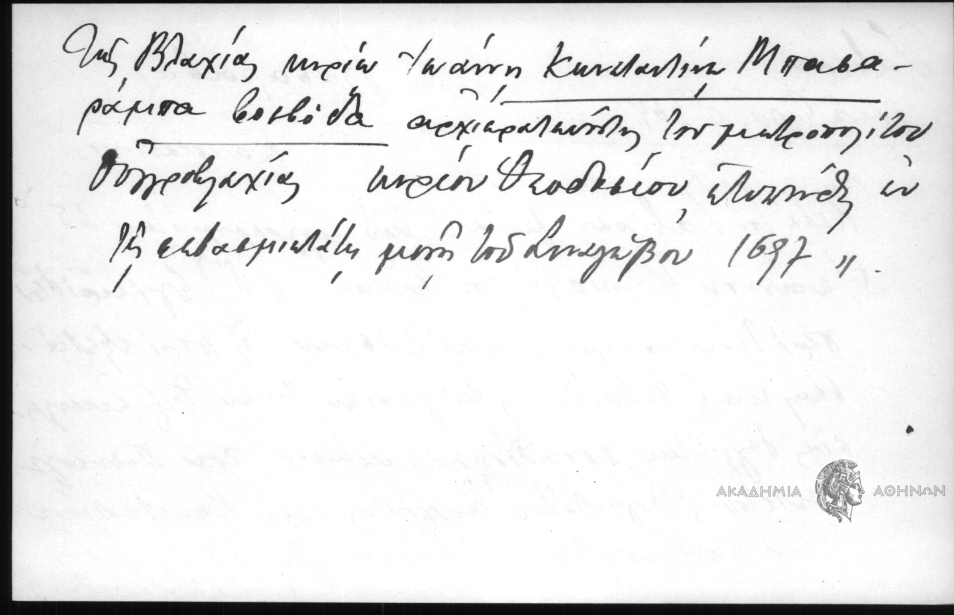 τῆς Βλαχίας κυρίου Ἰωάννη Κωνσταντίνου Μπασα-
ράμπα βοεβόδα ἀρχιερατεύοντος τοῦ μητροπολίτου
Οὐγγροβλαχίας κυρίου Θεοδοσίου, ἐτυπώθη ἐν
τῇ σεβασμιωτάτῃ μονῇ τοῦ Συναγώβου 1697 "
ΑΚΑΔΗΜΙΑ ΑΘΗΝΩΝ